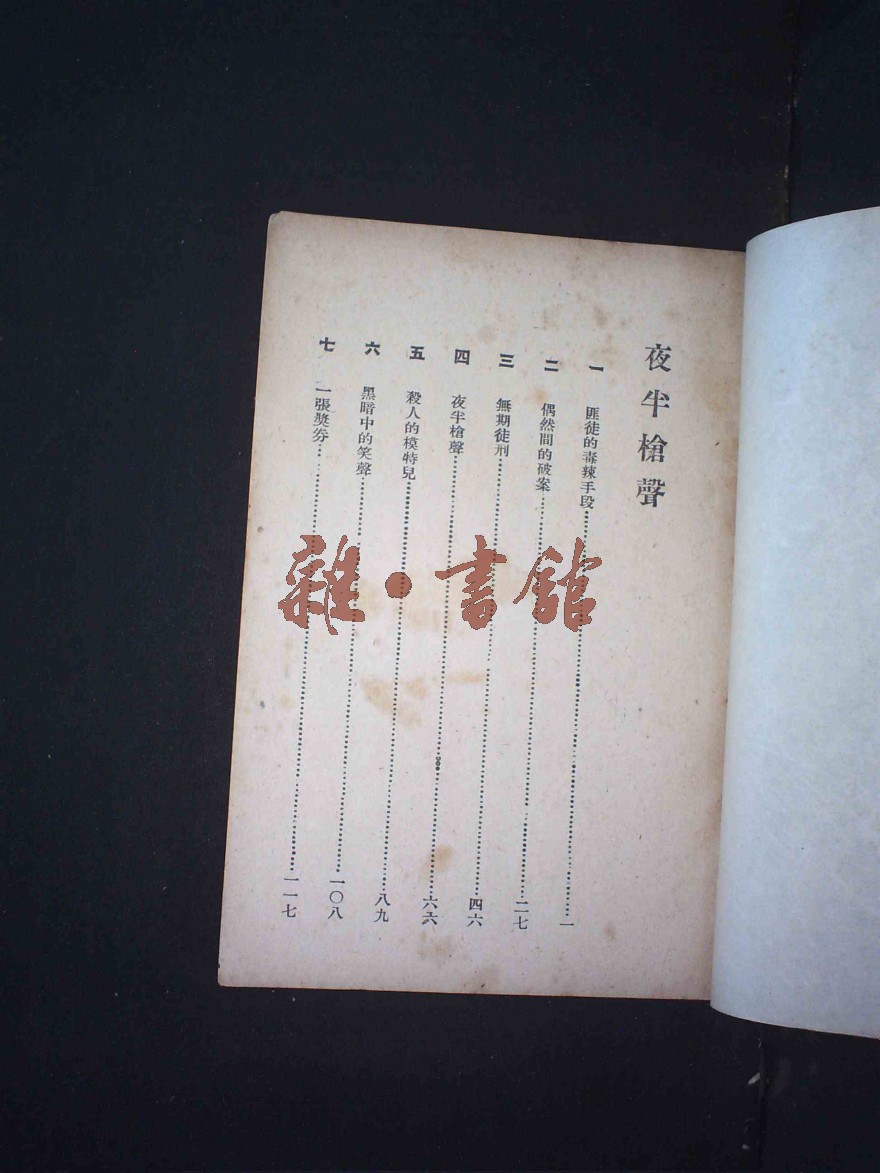 夜半槍聲
一 匪徒的毒辣手段……一
二 偶然間的破案……二七
三 無期徒刑……四六
四 夜半槍聲……六六
五 殺人的模特兒……八九
六 黑暗中的笑聲……一〇八
七 一張獎券……一一七
雜·書館